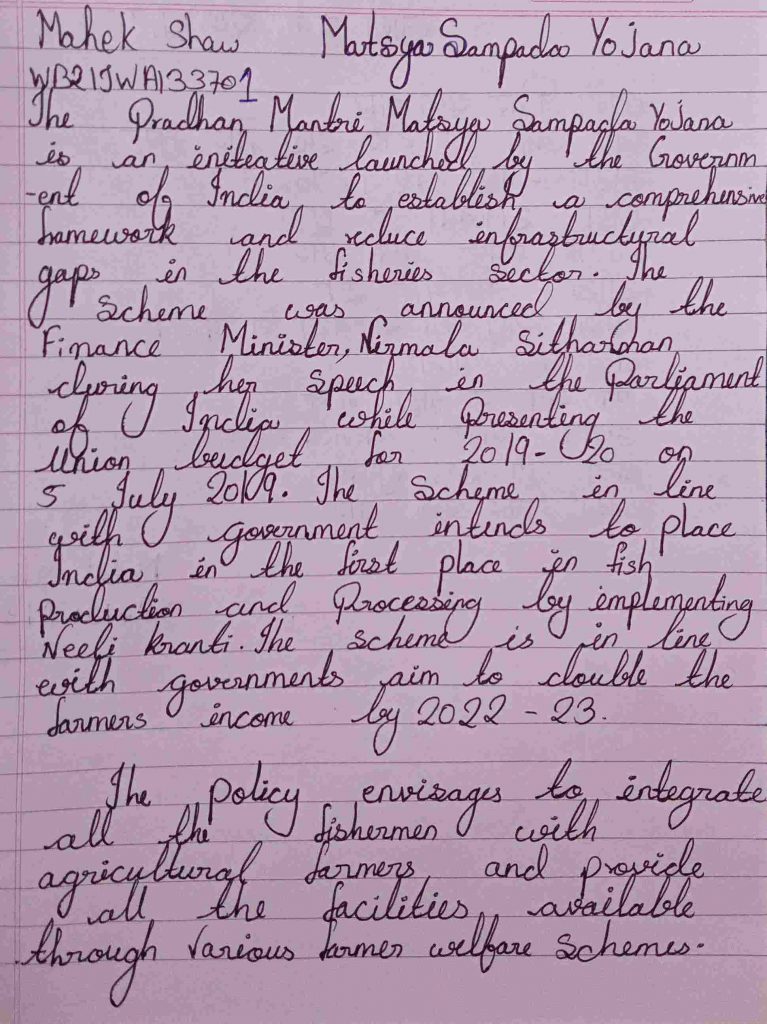 Mahek Shaw Matsya Sampada Yojana
WB21JWA133701
The Pradhan Mantri Matsya Sampada Yojana
is an initeative launched by the Governm
-ent of India to establish a comprehensive
framework and reduce infrastructural
gaps in the fisheries sector. The
Scheme was announced by the
Finance Minister, Nirmala Sitharahan
during her speech in the Parliament
of India while presenting the
Union budget for 2019-20 on
5 July 2019. The Scheme in line
with government intends to place
India in the first place in fish
production and Processing by implementing
Neeli kranti. The scheme is in line
with governments aim to double the
farmers income by 2022-23.
The policy envisages to integrate
all the fishermen with
agricultural farmers and provide
all the facilities available
through various farmer welfare schemes.